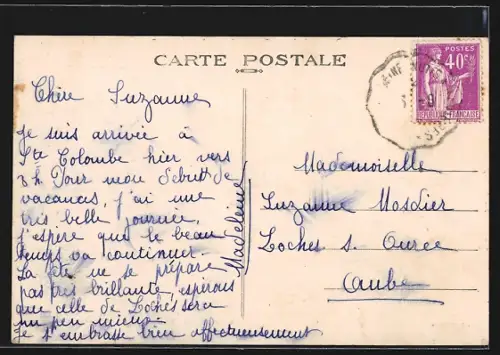 CARTE POSTALE
POSTES
40c
REPUBLIQUE FRANÇAISE
Chère Suzanne
Je suis arrivée à
Ste Colombe hier vers
3h. Pour mon début de
vacances, j'ai une
très belle journée,
j'espère que le beau
temps va continuer.
La fête ne se prépare
pas très brillante, espérons
que celle de Loches sera
un peu mieux.
Je t'embrasse bien affectueusement
Madeleine
Mademoiselle
Suzanne Mosdier
Loches s. Ource
Aube